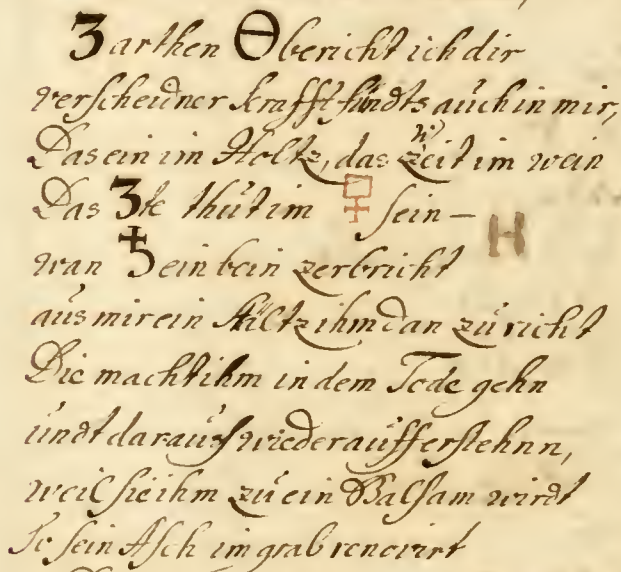 3arthen Θ bericht ich dir
verscheidner krafft findts auch in mir,
Das ein im Holtz, das Zweit im wein
Das 3te thut im sein —
wan ♄ ein bein zerbricht
aus mir ein Stältz ihm dan zu richt
Die macht ihm in dem Tode gehn
undt daraus wieder aufferstehnn,
weil sie ihm zu ein Balsam wirdt
So sein Asch im grab renovirt